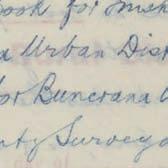 ook for
a Urban Dist
for Buncrana U
nty Survey